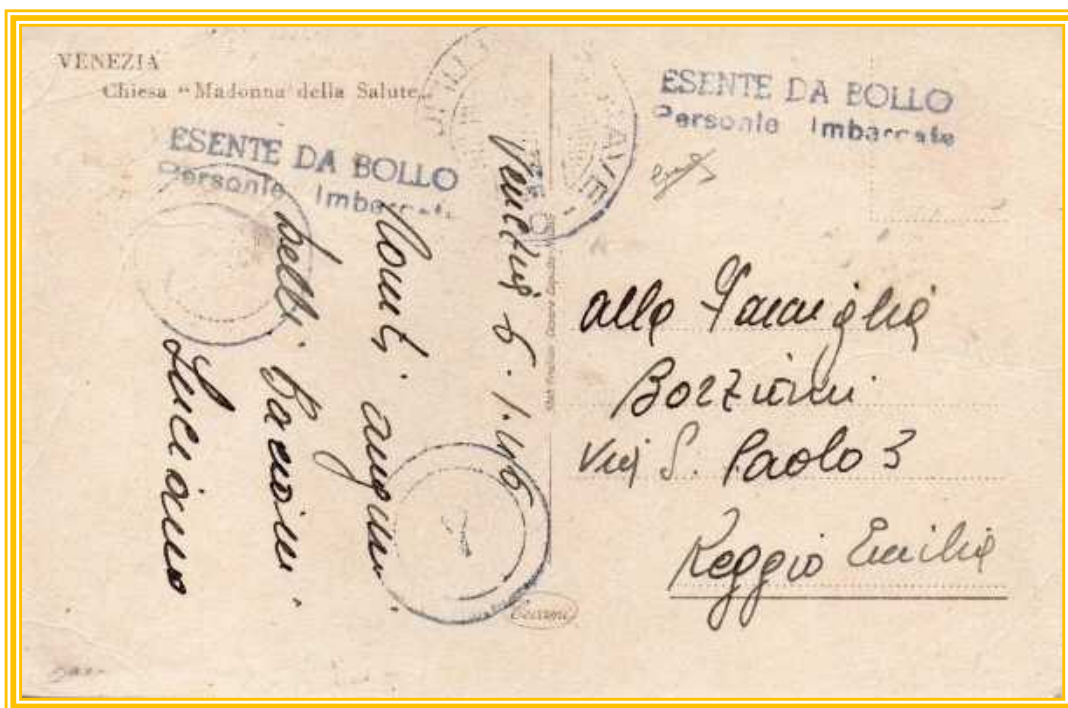 VENEZIA
Chiesa “Madonna della Salute„
ESENTE DA BOLLO
Personale Imbarcato
ESENTE DA BOLLO
Personale Imbarcato
AVE
Venezia 6.1.46
auguri.
belli Bacioni.
Luciano
alla Famiglia
Borziani
Via S. Paolo 3
Reggio Emilia